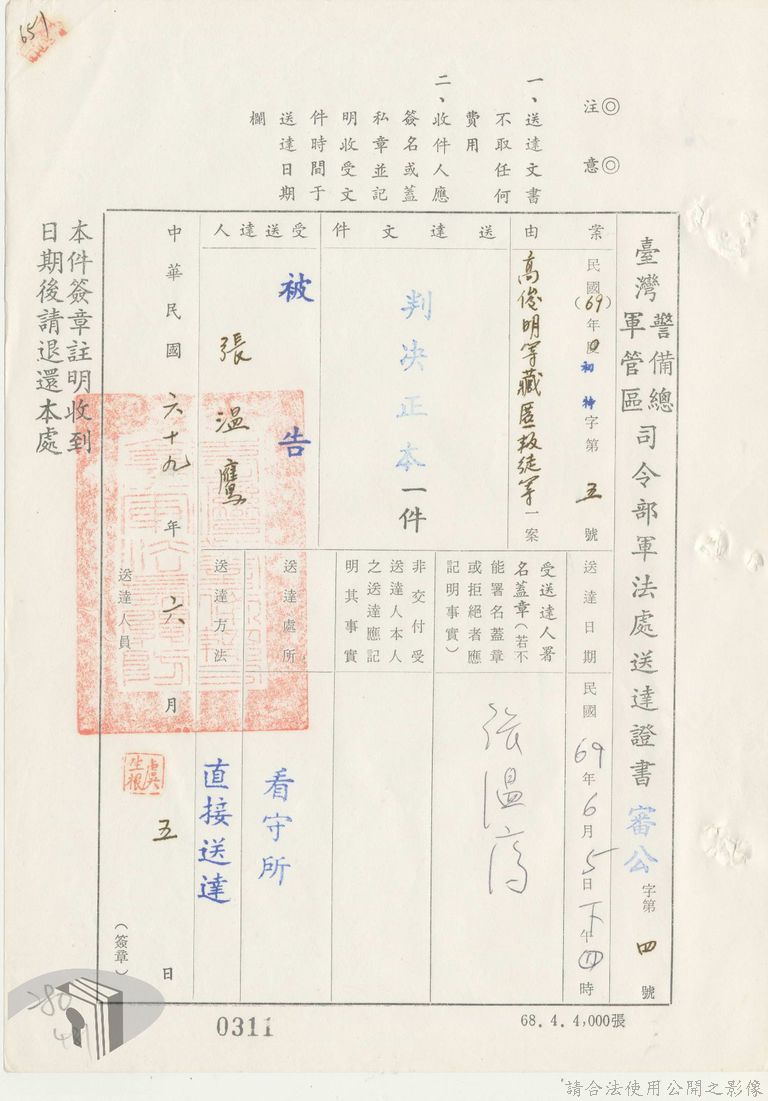 651
注意
一、送達文書
不取任何
費用
二、收件人應
簽名或蓋
私章並記
明收受文
件時間于
送達日期
欄
臺灣警備總司令部軍法處送達證書 審公字第四號
軍管區
案由
民國(69)年度初特字第五號
高俊明等藏匿叛徒等一案
送達文件
判決正本一件
受送達人
被告
張溫鷹
中華民國六十九年六月五日
送達日期
民國69年6月5日下午四時
受送達人署
名蓋章(若不
能署名蓋章
或拒絕者應
記明事實)
張溫鷹
非交付受
送達人本人
之送達應記
明其事實
送達處所
看守所
送達方法
直接送達
送達人員
虞生根
(簽章)
本件簽章註明收到
日期後請退還本處
0311
68.4.4,000張
280
請合法使用公開之影像